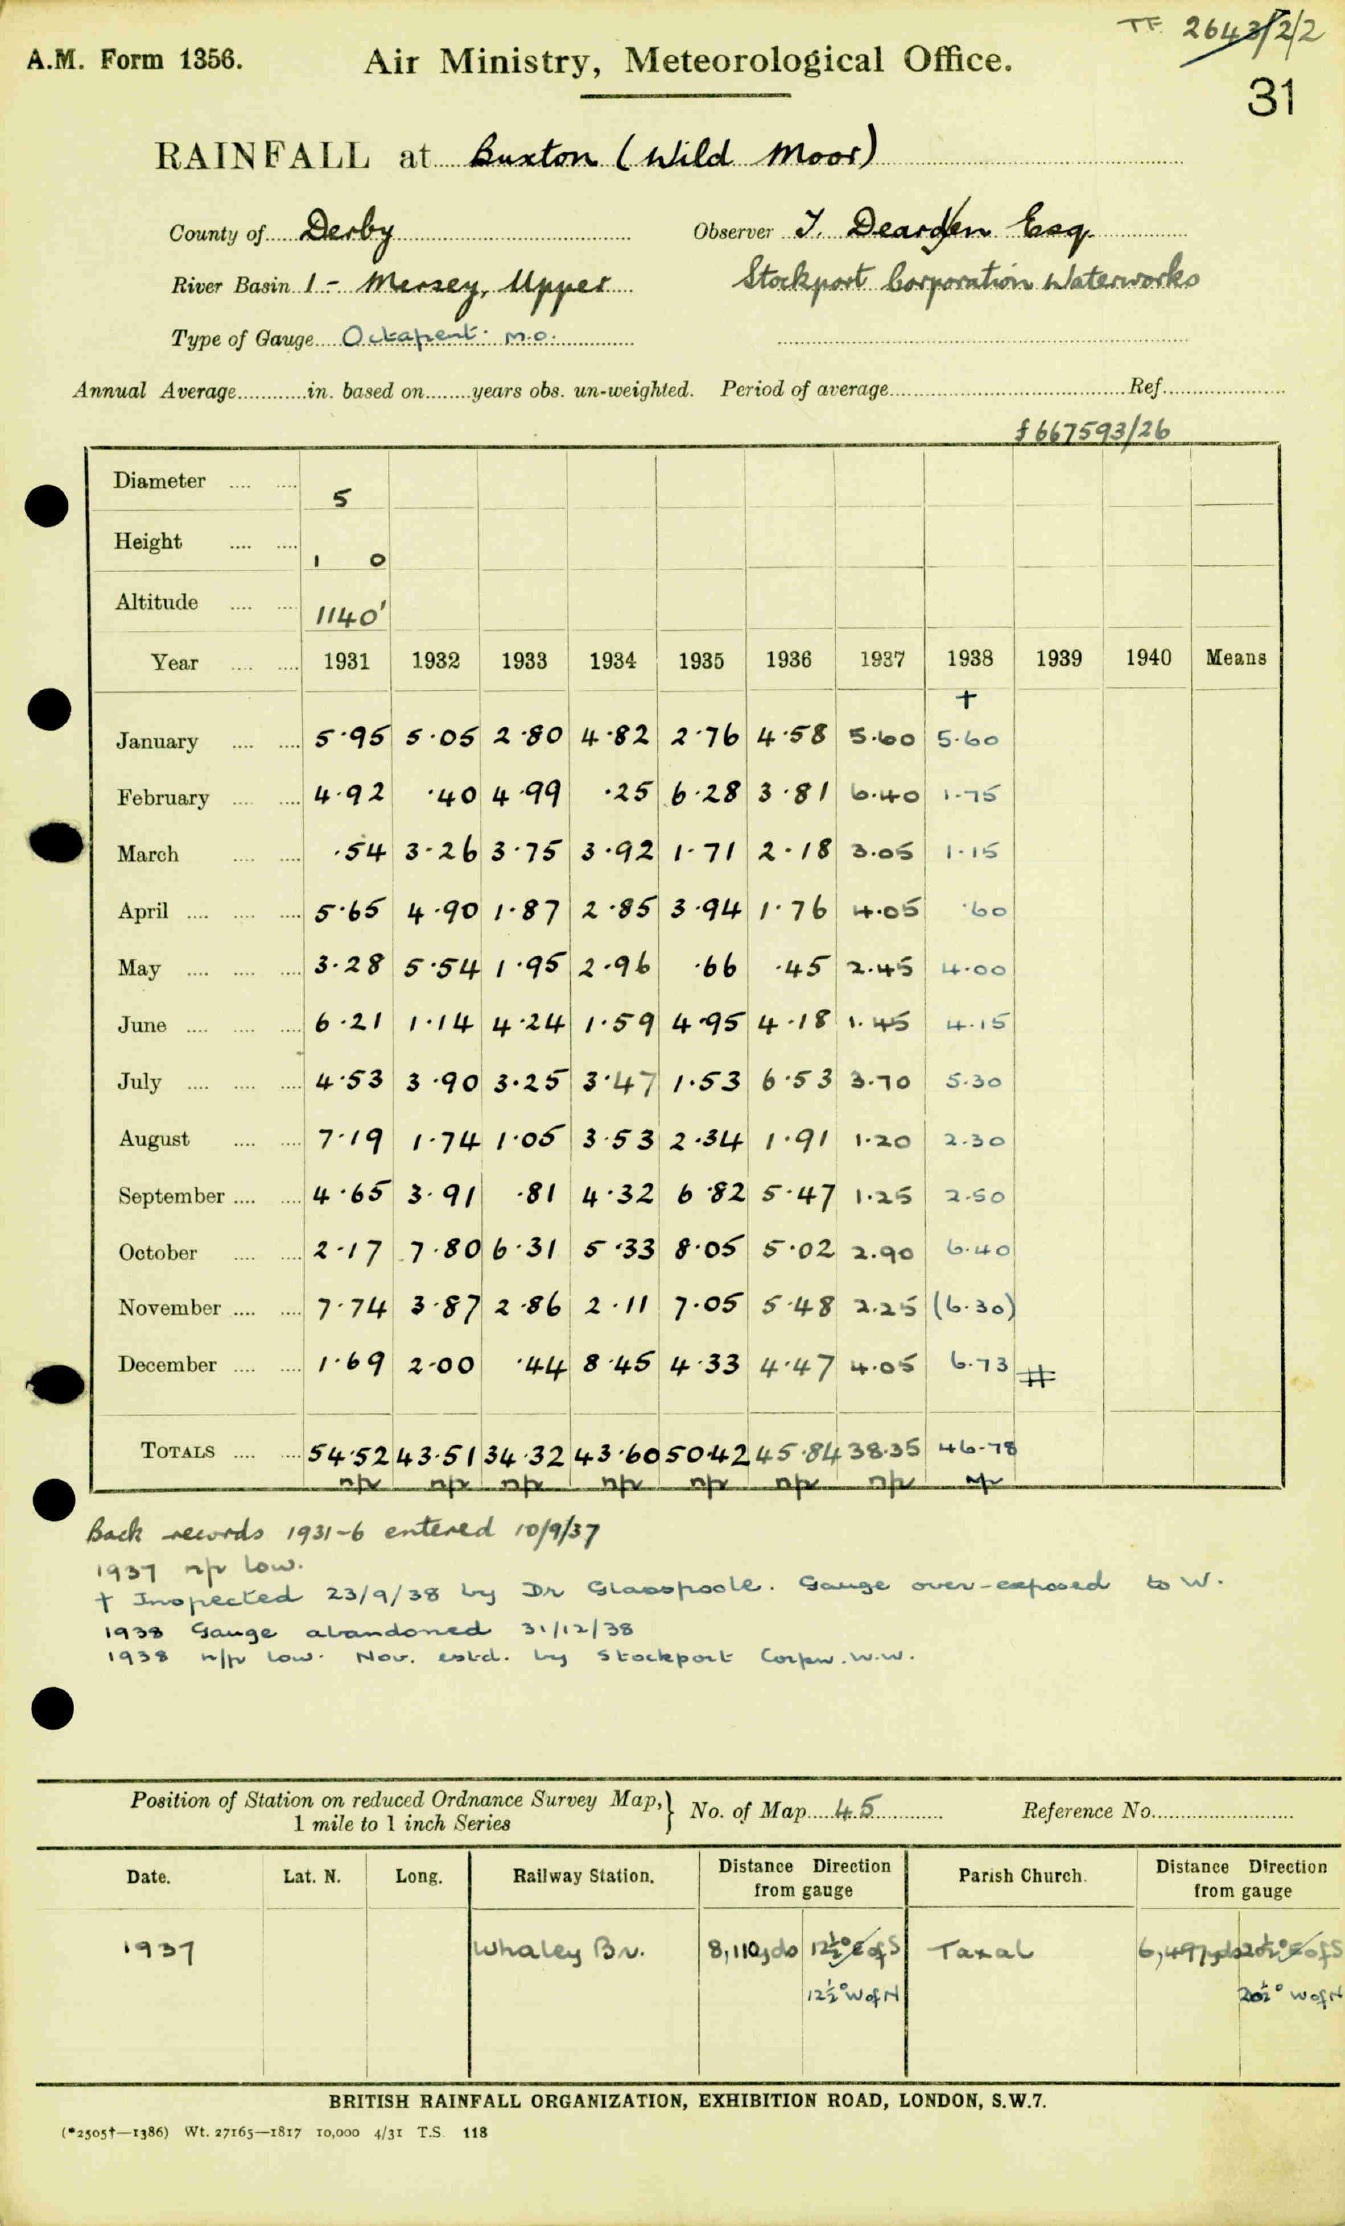 TF 2643/2/2
A.M. Form 1356. Air Ministry, Meteorological Office.
31
RAINFALL at Buxton (Wild Moor)
County of Derby Observer T. Dearden Esq.
River Basin 1 - Mersey, Upper Stockport Corporation Waterworks
Type of Gauge Octapent m.o.
Annual Average in. based on years obs. un-weighted. Period of average Ref.
£667593/26
Diameter 5
Height 1 0
Altitude 1140'
Year 1931 1932 1933 1934 1935 1936 1937 1938 1939 1940 Means
†
January 5.95 5.05 2.80 4.82 2.76 4.58 5.60 5.60
February 4.92 .40 4.99 .25 6.28 3.81 6.40 1.75
March .54 3.26 3.75 3.92 1.71 2.18 3.05 1.15
April 5.65 4.90 1.87 2.85 3.94 1.76 4.05 .60
May 3.28 5.54 1.95 2.96 .66 .45 2.45 4.00
June 6.21 1.14 4.24 1.59 4.95 4.18 1.45 4.15
July 4.53 3.90 3.25 3.47 1.53 6.53 3.70 5.30
August 7.19 1.74 1.05 3.53 2.34 1.91 1.20 2.30
September 4.65 3.91 .81 4.32 6.82 5.47 1.25 2.50
October 2.17 7.80 6.31 5.33 8.05 5.02 2.90 6.40
November 7.74 3.87 2.86 2.11 7.05 5.48 2.25 (6.30)
December 1.69 2.00 .44 8.45 4.33 4.47 4.05 6.73 #
TOTALS 54.52 43.51 34.32 43.60 50.42 45.84 38.35 46.78
n/p n/p n/p n/p n/p n/p n/p n/p
Back records 1931-6 entered 10/9/37
1937 n/p low.
† Inspected 23/9/38 by Dr Glasspoole. Gauge over-exposed to W.
1938 Gauge abandoned 31/12/38
1938 n/p low. Nov. estd. by Stockport Corpn. W.W.
Position of Station on reduced Ordnance Survey Map, 1 mile to 1 inch Series } No. of Map 45 Reference No.
Date. Lat. N. Long. Railway Station. Distance Direction from gauge Parish Church. Distance Direction from gauge
1937 Whaley Br. 8,110yds 12½° E of S Taxal 6,497yds 20½° E of S
12½° W of N 20½° W of N
BRITISH RAINFALL ORGANIZATION, EXHIBITION ROAD, LONDON, S.W.7.
(*2505†—1386) Wt. 27165—1817 10,000 4/31 T.S. 118